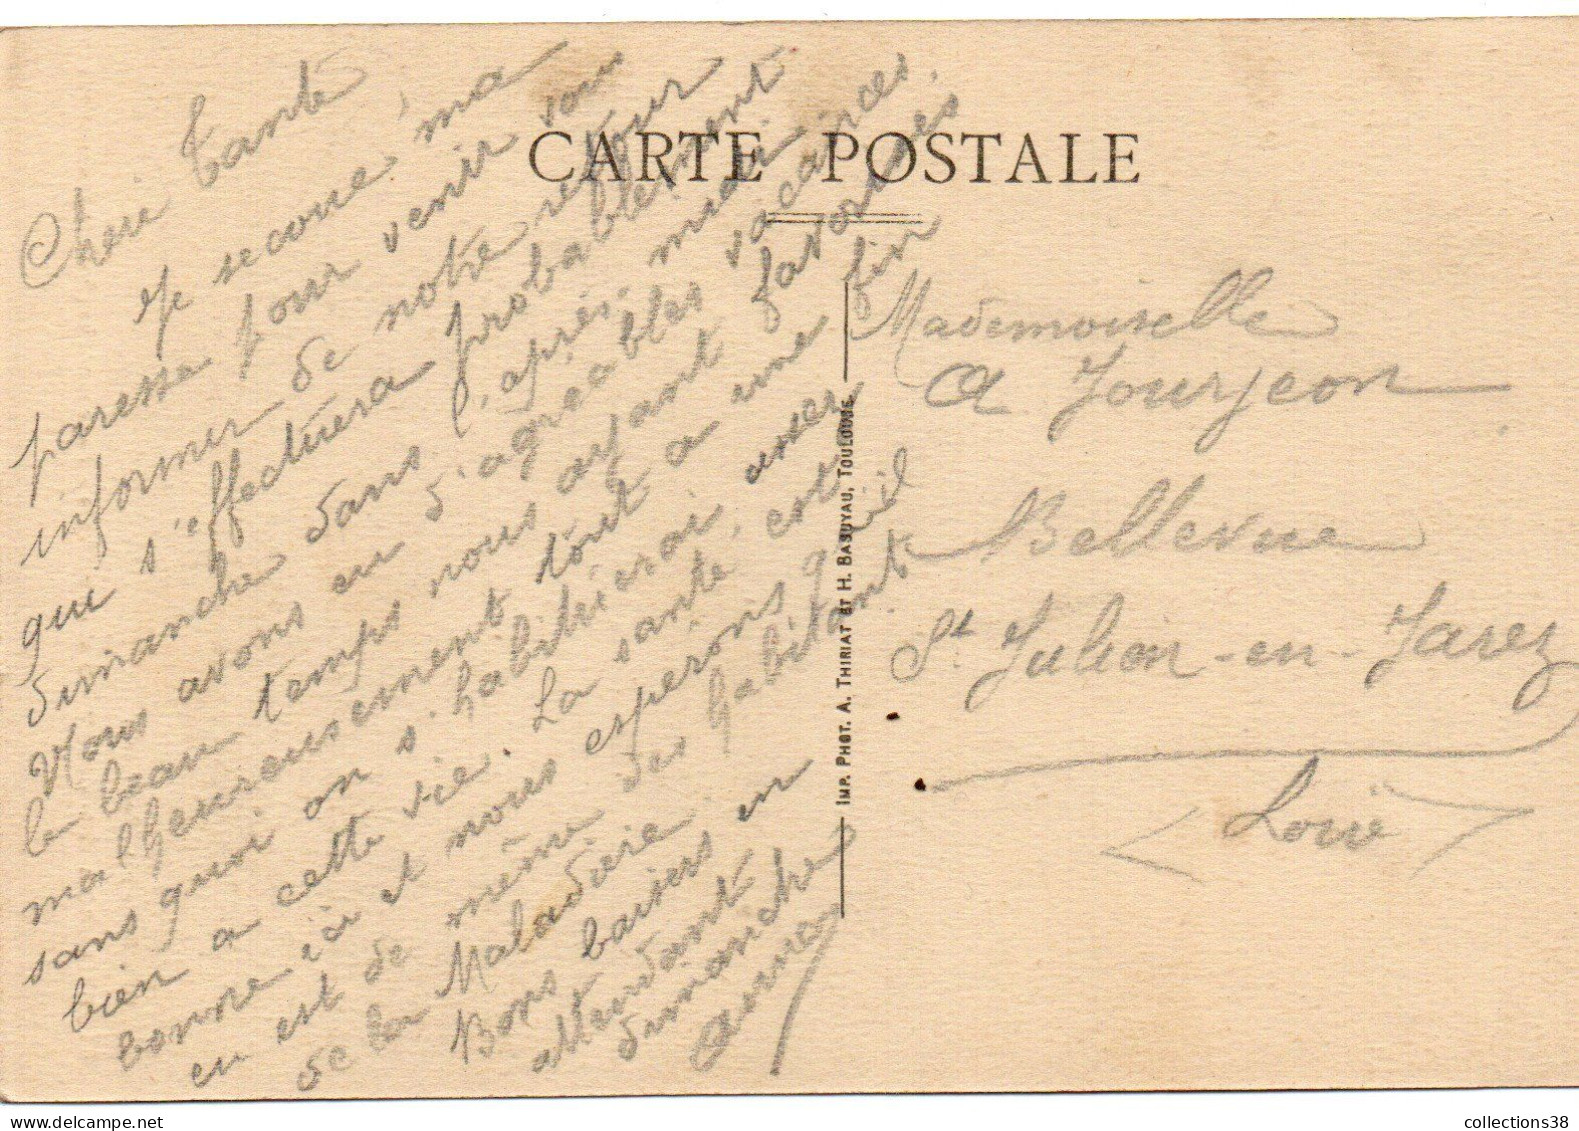 CARTE POSTALE
Cheri Tante
Je secoue ma
paresse pour venir vous
informer de notre retour
qui s'effectuera probablement
dimanche dans l'après-midi.
Nous avons eu d'agréables vacances.
le beau temps nous ayant favorisés
malheureusement tout a une fin
sans quoi on s'habituerai assez
bien a cette vie. La santé, est
bonne ici et nous espérons qu'il
en est de même des habitant
de la Maladière.
Bons baisers en
attendant
dimanche
Anna
IMP. PHOT. A. THIRIAT ET H. BASUYAU, TOULOUSE
Mademoiselle
A Fourjeon
Bellevue
St Julien-en-Jarez
(Loire)
collections38